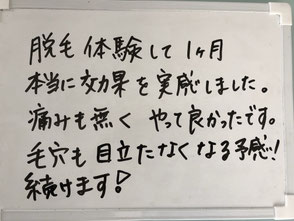 脱毛体験して1ヶ月
本当に効果を実感しました。
痛みも無くやって良かったです。
毛穴も目立たなくなる予感!
続けます!